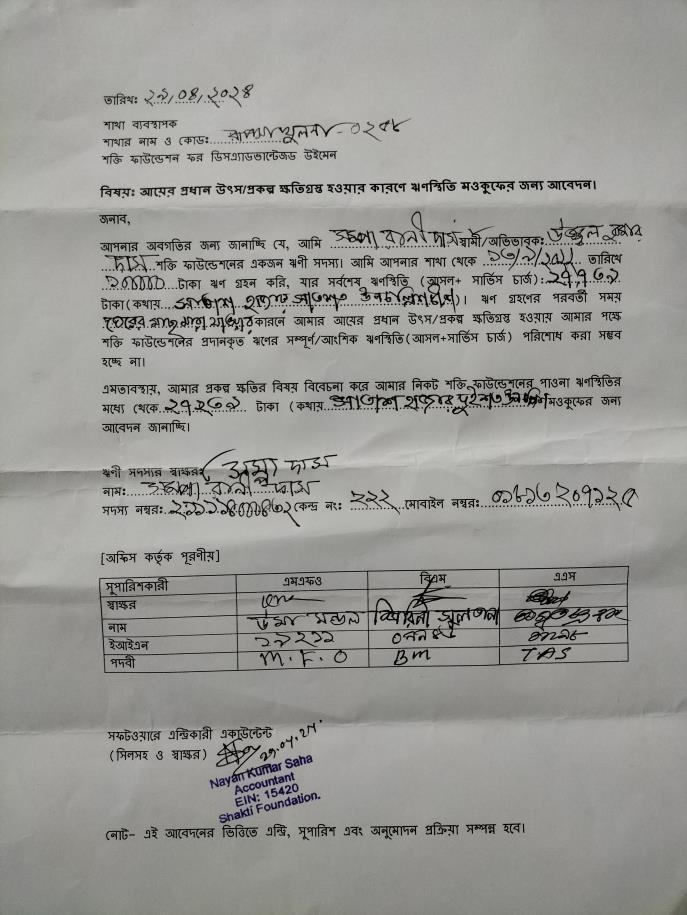 তারিখঃ ২৯/০৪/২০২৪
শাখা ব্যবস্থাপক
শাখার নাম ও কোডঃ খুলনা-০২৫৮
শক্তি ফাউন্ডেশন ফর ডিসএ্যাডভান্টেজড উইমেন
বিষয়ঃ আয়ের প্রধান উৎস/প্রকল্প ক্ষতিগ্রস্ত হওয়ার কারণে ঋণস্থিতি মওকুফের জন্য আবেদন।
জনাব,
আপনার অবগতির জন্য জানাচ্ছি যে, আমি রানী দাস স্বামী/অভিভাবকঃ উজ্জ্বল কুমার
দাস শক্তি ফাউন্ডেশনের একজন ঋণী সদস্য। আমি আপনার শাখা থেকে তারিখে
টাকা ঋণ গ্রহন করি, যার সর্বশেষ ঋণস্থিতি (আসল+ সার্ভিস চার্জ) : ২৭,৭৩৯
টাকা (কথায় সাতাশ হাজার সাতশত উনচল্লিশ)। ঋণ গ্রহণের পরবর্তী সময়
কারনে আমার আয়ের প্রধান উৎস/প্রকল্প ক্ষতিগ্রস্ত হওয়ায় আমার পক্ষে
শক্তি ফাউন্ডেশনের প্রদানকৃত ঋণের সম্পূর্ণ/আংশিক ঋণস্থিতি(আসল+সার্ভিস চার্জ) পরিশোধ করা সম্ভব
হচ্ছে না।
এমতাবস্থায়, আমার প্রকল্প ক্ষতির বিষয় বিবেচনা করে আমার নিকট শক্তি ফাউন্ডেশনের পাওনা ঋণস্থিতির
মধ্যে থেকে ২৭,২৩৯ টাকা (কথায় সাতাশ হাজার দুইশত মওকুফের জন্য
আবেদন জানাচ্ছি।
ঋণী সদস্যর স্বাক্ষরঃ দাস
নামঃ রানী দাস
সদস্য নম্বরঃ কেন্দ্র নং: ২২২ মোবাইল নম্বরঃ ০১৮১৩২০৭১২৫
[অফিস কর্তৃক পূরণীয়]
সুপারিশকারী এমএফও বিএম এএস
স্বাক্ষর
নাম উমা মন্ডল
ইআইএন ১৯২১১
পদবী M.F.O BM TAS
সফটওয়্যারে এন্ট্রিকারী একাউন্টেন্ট
(সিলসহ ও স্বাক্ষর) 29.04.24
Nayan Kumar Saha
Accountant
EIN: 15420
Shakti Foundation.
নোট- এই আবেদনের ভিত্তিতে এন্ট্রি, সুপারিশ এবং অনুমোদন প্রক্রিয়া সম্পন্ন হবে।